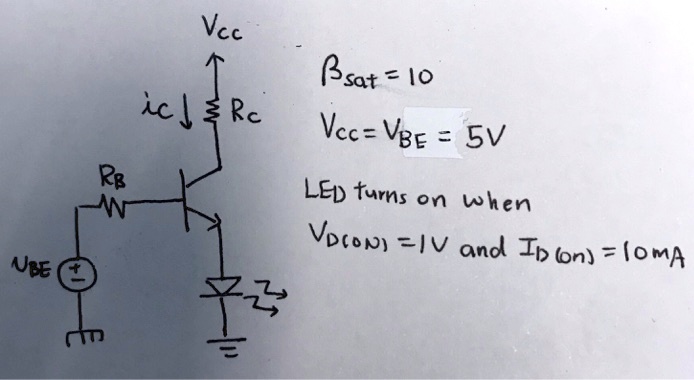 Vcc
ic
Rc
RB
VBE
+
-
βsat = 10
Vcc = VBE = 5V
LED turns on when
VD(ON) = 1V and ID(on) = 10mA